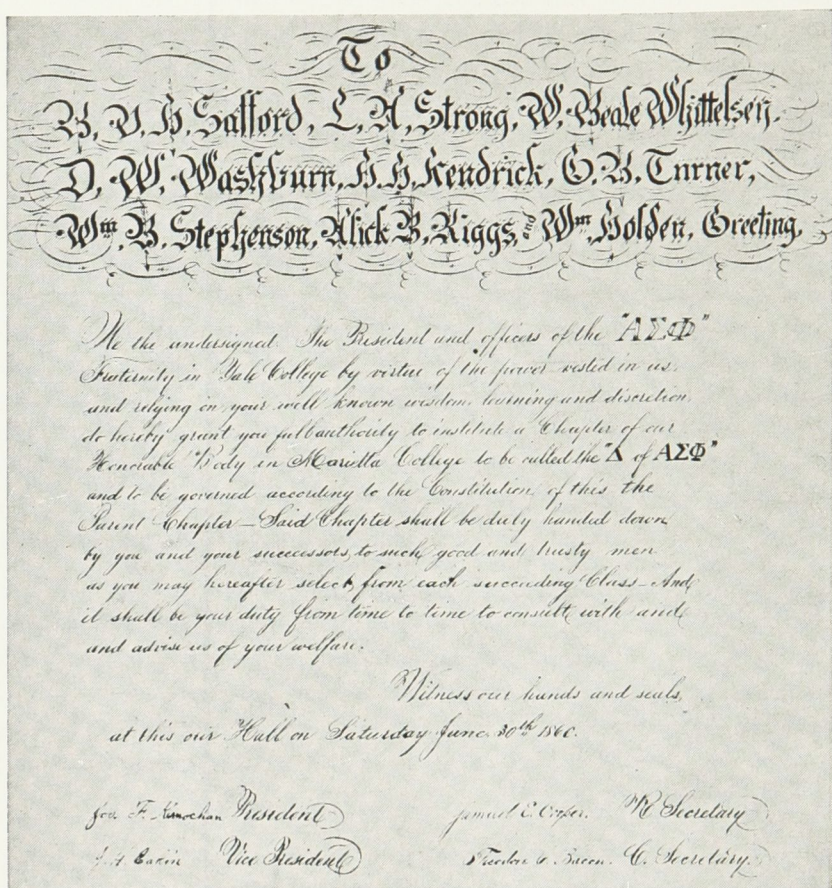 To
B. V. H. Safford, L. A. Strong, W. Beale Whittelsey.
D. W. Washburn, H. H. Kendrick, G. B. Turner,
Wm. B. Stephenson, Alick B. Riggs, and Wm. Holden, Greeting.
We the undersigned. The President and officers of the "ΑΣΦ"
Fraternity in Yale College by virtue of the power vested in us,
and relying on your well known wisdom, learning and discretion,
do hereby grant you full authority to institute a Chapter of our
Honorable Body in Marietta College to be called the "Δ of ΑΣΦ"
and to be governed according to the Constitution, of this the
Parent Chapter – Said Chapter shall be duly handed down
by you and your successors, to such good and trusty men
as you may hereafter select, from each succeeding Class – And
it shall be your duty from time to time to consult, with and
and advise us of your welfare.
Witness our hands and seals,
at this our Hall on Saturday June 30th 1860.
F. Kernochan President
Samuel E. Cooper. R Secretary
Vice President
Theodore C. Bacon. C. Secretary.